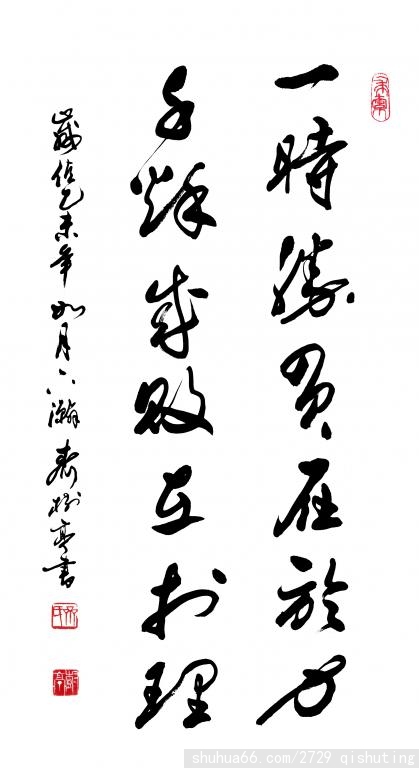 一時勝負在於力
千秌成敗在於理
歲值乙未年如月六瀚樹亭書
shuhua66.com/2729 qishuting